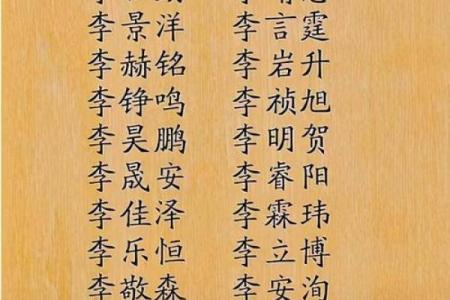 李景洋 李言霆
李赫铭 李岩升
李铮鸣 李祯旭
李昊鹏 李明贺
李晟安 李睿阳
李佳泽 李霖玮
李乐恒 李立博
李敬森 李安洵